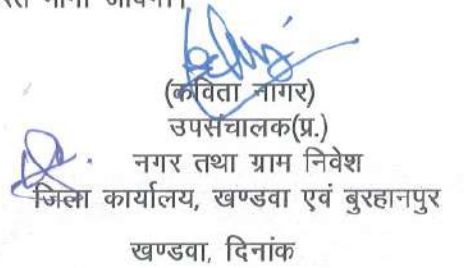 माना जावेगा।
(कविता नागर)
उपसंचालक(प्र.)
नगर तथा ग्राम निवेश
जिला कार्यालय, खण्डवा एवं बुरहानपुर
खण्डवा, दिनांक